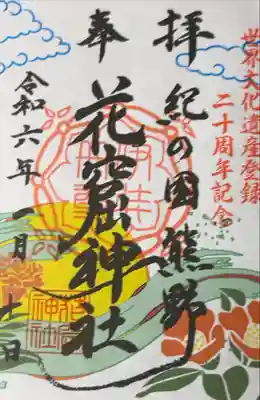 世界文化遺産登録
二十周年記念
奉拝
紀の国熊野
花窟神社
令和六年一月十日